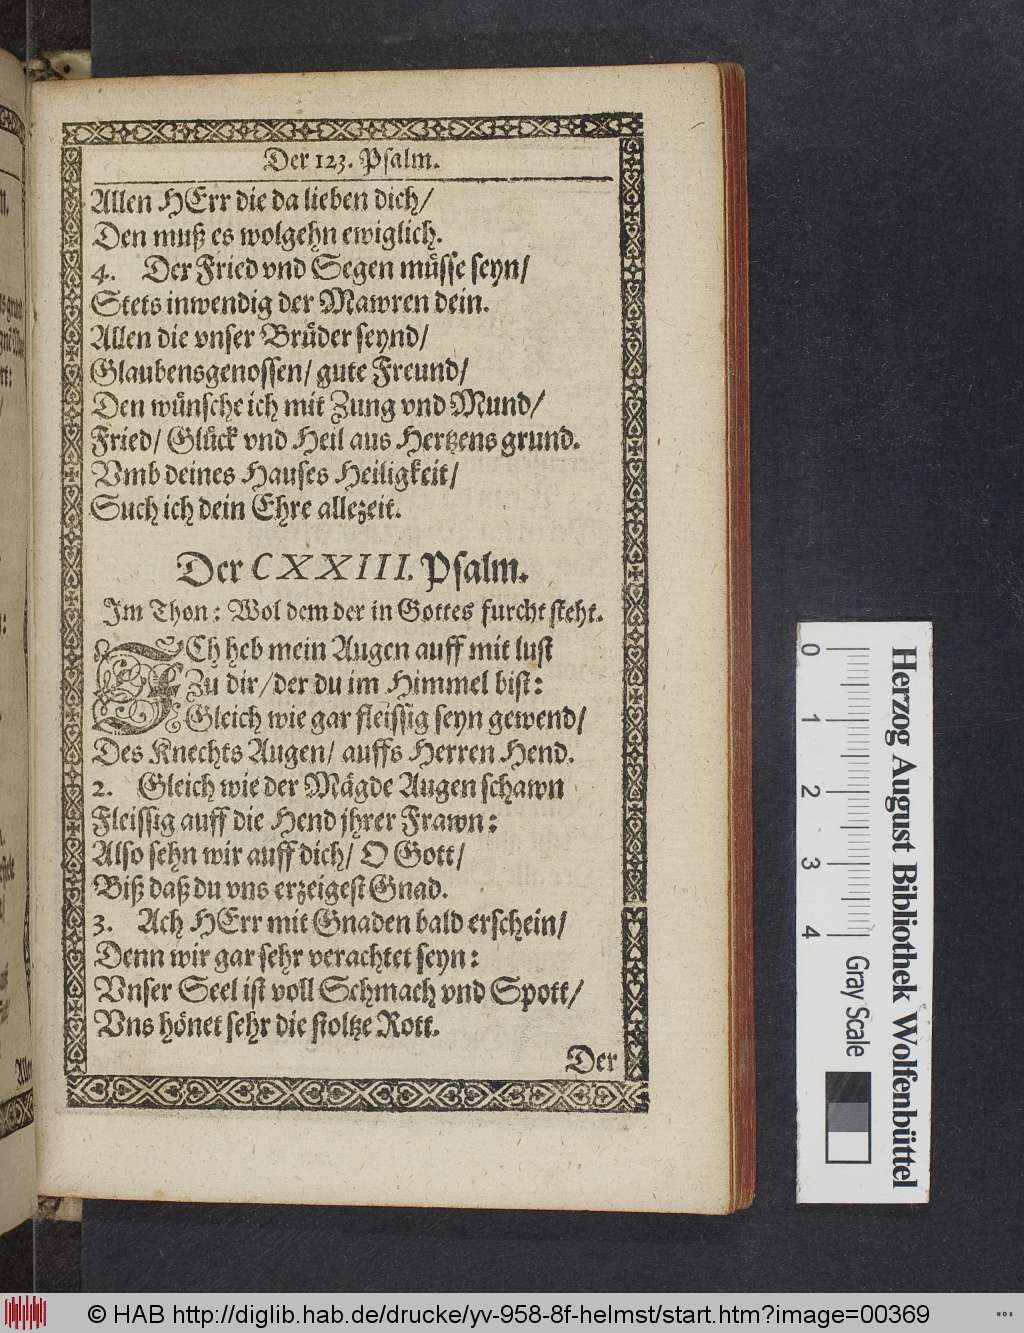 Der 123. Psalm.
Allen HErr die da lieben dich/
Den muß es wolgehn ewiglich.
4. Der Fried vnd Segen müsse seyn/
Stets inwendig der Mawren dein.
Allen die vnser Brüder seynd/
Glaubensgenossen/ gute Freund/
Den wünsche ich mit Zung vnd Mund/
Fried/ Glück vnd Heil aus Hertzens grund.
Vmb deines Hauses Heiligkeit/
Such ich dein Ehre allezeit.
Der CXXIII. Psalm.
Im Thon: Wol dem der in Gottes furcht steht.
ICh heb mein Augen auff mit lust
Zu dir/ der du im Himmel bist:
Gleich wie gar fleissig seyn gewend/
Des Knechts Augen/ auffs Herren Hend.
2. Gleich wie der Mägde Augen schawn
Fleissig auff die Hend jhrer Frawn:
Also sehn wir auff dich/ O Gott/
Biß daß du vns erzeigest Gnad.
3. Ach HErr mit Gnaden bald erschein/
Denn wir gar sehr verachtet seyn:
Vnser Seel ist voll Schmach vnd Spott/
Vns hönet sehr die stoltze Rott.
Der
0 1 2 3 4
Gray Scale
Herzog August Bibliothek Wolfenbüttel
© HAB http://diglib.hab.de/drucke/yv-958-8f-helmst/start.htm?image=00369